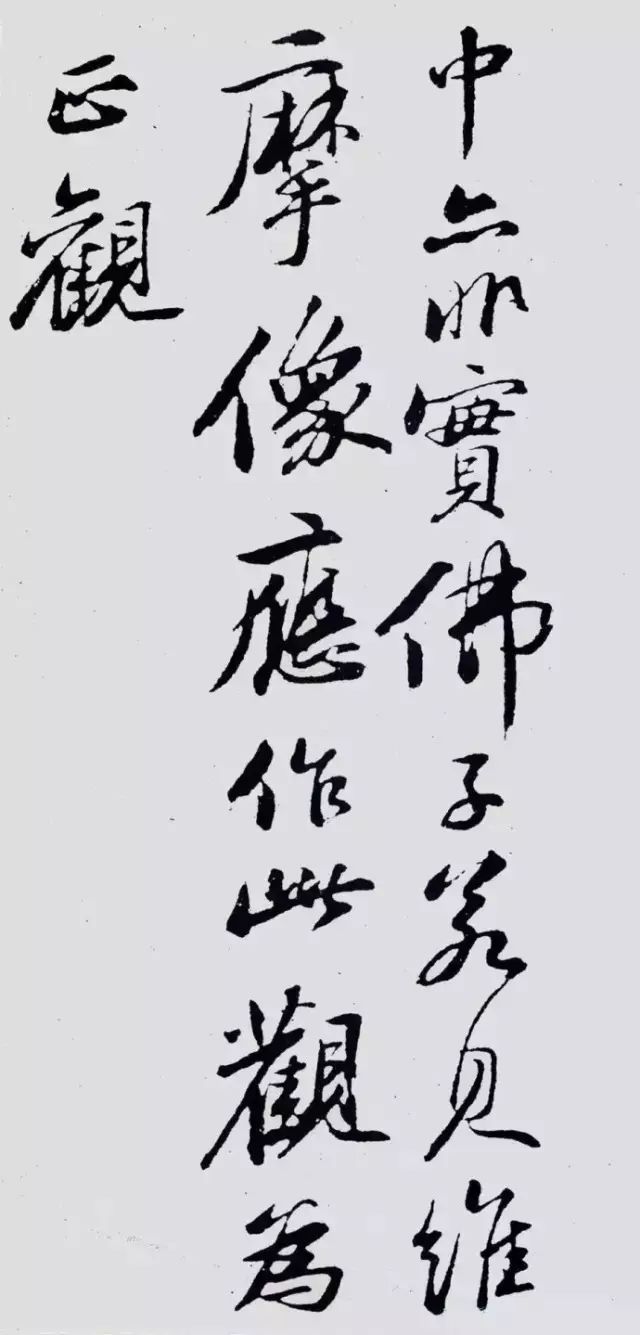 中亦非實佛子若見維
摩像應作此觀為
正觀